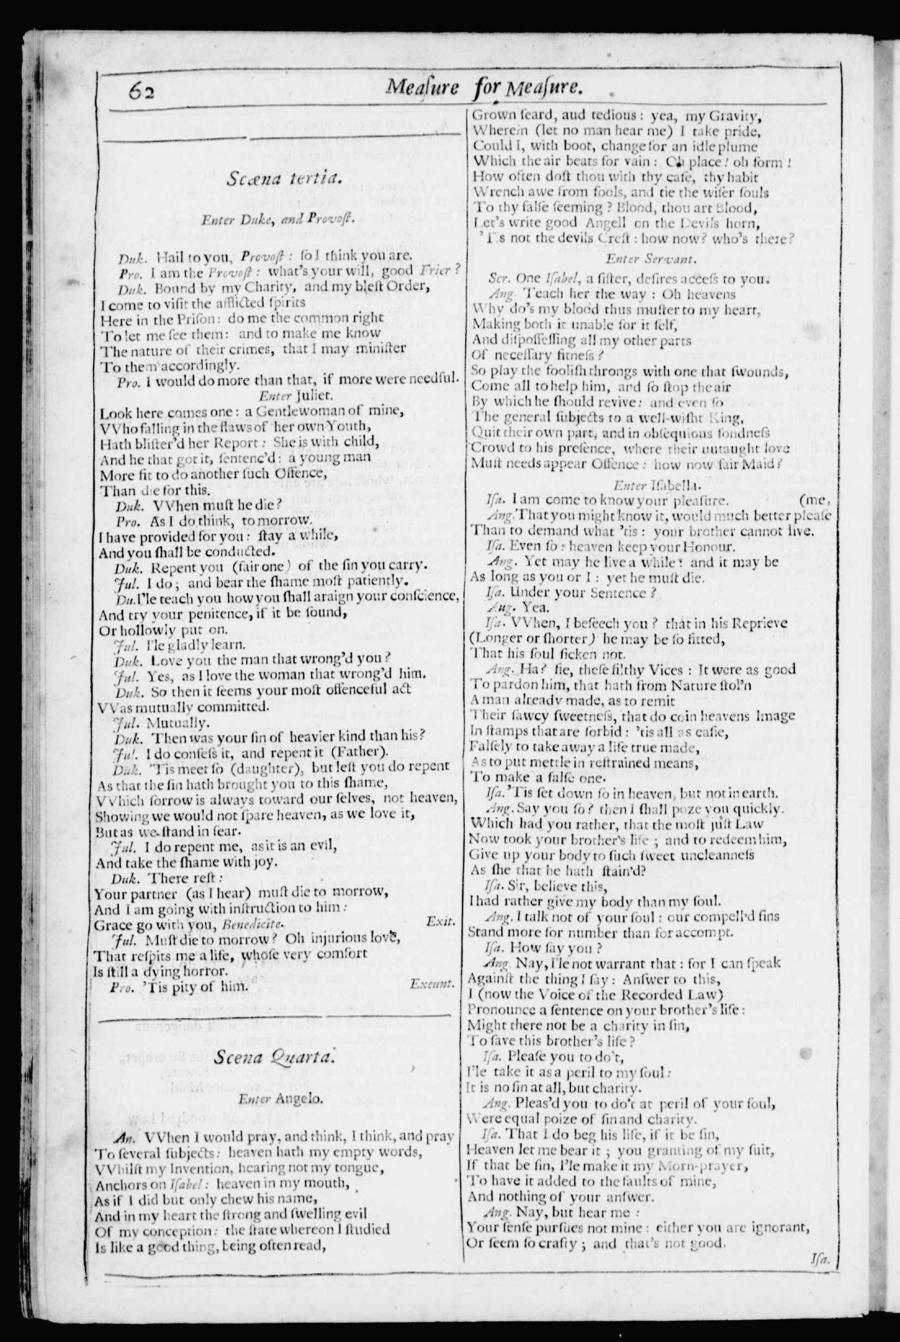 62
Meaſure for Meaſure.
Scæna tertia.
Enter Duke, and Provoſt.
Duk. Hail to you, Provoſt : ſo I think you are.
Pro. I am the Provoſt : what's your will, good Frier ?
Duk. Bound by my Charity, and my bleſt Order,
I come to viſit the afflicted ſpirits
Here in the Priſon: do me the common right
To let me ſee them: and to make me know
The nature of their crimes, that I may miniſter
To them accordingly.
Pro. I would do more than that, if more were needful.
Enter Juliet.
Look here comes one: a Gentlewoman of mine,
VVho falling in the flaws of her own Youth,
Hath bliſter'd her Report: She is with child,
And he that got it, ſentenc'd: a young man
More fit to do another ſuch Offence,
Than die for this.
Duk. VVhen muſt he die?
Pro. As I do think, to morrow.
I have provided for you: ſtay a while,
And you ſhall be conducted.
Duk. Repent you (fair one) of the ſin you carry.
Jul. I do; and bear the ſhame moſt patiently.
Du. I'le teach you how you ſhall araign your conſcience,
And try your penitence, if it be ſound,
Or hollowly put on.
Jul. I'le gladly learn.
Duk. Love you the man that wrong'd you?
Jul. Yes, as I love the woman that wrong'd him.
Duk. So then it ſeems your moſt offenceful act
VVas mutually committed.
Jul. Mutually.
Duk. Then was your ſin of heavier kind than his?
Jul. I do confeſs it, and repent it (Father).
Duk. 'Tis meet ſo (daughter), but leſt you do repent
As that the ſin hath brought you to this ſhame,
VVhich ſorrow is always toward our ſelves, not heaven,
Showing we would not ſpare heaven, as we love it,
But as we ſtand in fear.
Jul. I do repent me, as it is an evil,
And take the ſhame with joy.
Duk. There reſt:
Your partner (as I hear) muſt die to morrow,
And I am going with inſtruction to him:
Grace go with you, Benedicite. Exit.
Jul. Muſt die to morrow? Oh injurious love,
That reſpits me a life, whoſe very comfort
Is ſtill a dying horror.
Pro. 'Tis pity of him. Exeunt.
Scena Quarta.
Enter Angelo.
An. VVhen I would pray, and think, I think, and pray
To ſeveral ſubjects: heaven hath my empty words,
VVhilſt my Invention, hearing not my tongue,
Anchors on Iſabel: heaven in my mouth,
As if I did but only chew his name,
And in my heart the ſtrong and ſwelling evil
Of my conception: the ſtate whereon I ſtudied
Is like a good thing, being often read,
Grown ſeard, aud tedious: yea, my Gravity,
Wherein (let no man hear me) I take pride,
Could I, with boot, change for an idle plume
Which the air beats for vain: Oh place! oh form!
How often doſt thou with thy caſe, thy habit
Wrench awe from fools, and tie the wiſer ſouls
To thy falſe ſeeming? Blood, thou art Blood,
Let's write good Angell on the Devils horn,
'Tis not the devils Creſt: how now? who's there?
Enter Servant.
Ser. One Iſabel, a ſiſter, deſires acceſs to you.
Ang. Teach her the way: Oh heavens
Why do's my blood thus muſter to my heart,
Making both it unable for it ſelf,
And diſpoſſeſſing all my other parts
Of neceſſary fitneſs?
So play the fooliſh throngs with one that ſwounds,
Come all to help him, and ſo ſtop the air
By which he ſhould revive: and even ſo
The general ſubjects to a well-wiſht King,
Quit their own part, and in obſequious fondneſs
Crowd to his preſence, where their untaught love
Muſt needs appear Offence: how now fair Maid?
Enter Iſabella.
Iſa. I am come to know your pleaſure. (me,
Ang. That you might know it, would much better pleaſe
Than to demand what 'tis: your brother cannot live.
Iſa. Even ſo: heaven keep your Honour.
Ang. Yet may he live a while: and it may be
As long as you or I: yet he muſt die.
Iſa. Under your Sentence?
Aug. Yea.
Iſa. VVhen, I beſeech you? that in his Reprieve
(Longer or ſhorter) he may be ſo fitted,
That his ſoul ſicken not.
Ang. Ha? fie, theſe filthy Vices: It were as good
To pardon him, that hath from Nature ſtol'n
A man already made, as to remit
Their ſawcy ſweetneſs, that do coin heavens Image
In ſtamps that are forbid: 'tis all as eaſie,
Falſely to take away a life true made,
As to put mettle in reſtrained means,
To make a falſe one.
Iſa. 'Tis ſet down ſo in heaven, but not in earth.
Ang. Say you ſo? then I ſhall poze you quickly.
Which had you rather, that the moſt juſt Law
Now took your brother's life; and to redeem him,
Give up your body to ſuch ſweet uncleanneſs
As ſhe that he hath ſtain'd?
Iſa. Sir, believe this,
I had rather give my body than my ſoul.
Ang. I talk not of your ſoul: our compell'd ſins
Stand more for number than for accompt.
Iſa. How ſay you?
Ang. Nay, I'le not warrant that: for I can ſpeak
Againſt the thing I ſay: Anſwer to this,
I (now the Voice of the Recorded Law)
Pronounce a ſentence on your brother's life:
Might there not be a charity in ſin,
To ſave this brother's life?
Iſa. Pleaſe you to do't,
I'le take it as a peril to my ſoul:
It is no ſin at all, but charity.
Ang. Pleas'd you to do't at peril of your ſoul,
Were equal poize of ſin and charity.
Iſa. That I do beg his life, if it be ſin,
Heaven let me bear it; you granting of my ſuit,
If that be ſin, I'le make it my Morn-prayer,
To have it added to the faults of mine,
And nothing of your anſwer.
Ang. Nay, but hear me:
Your ſenſe purſues not mine: either you are ignorant,
Or ſeem ſo crafty; and that's not good.
Iſa.